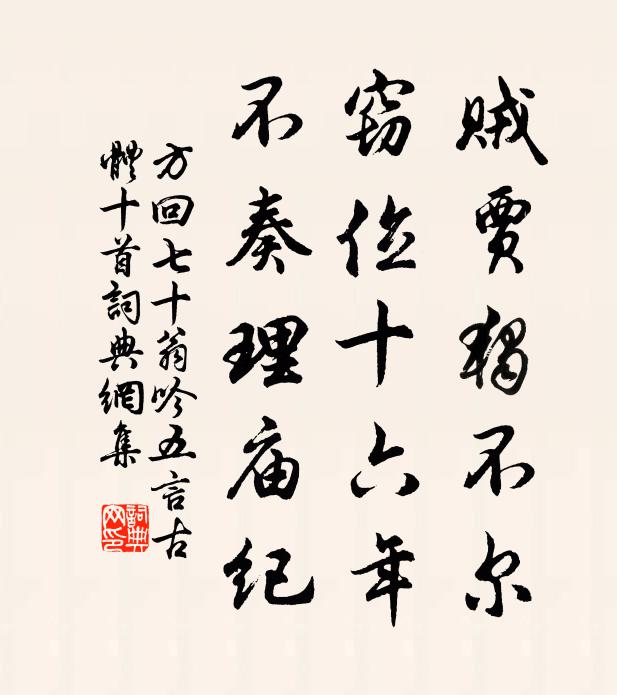 贼贾独不尔
窃位十六年
不奏理庙纪
方回七十翁吟五言古
體十首詞典網集
詞典网印